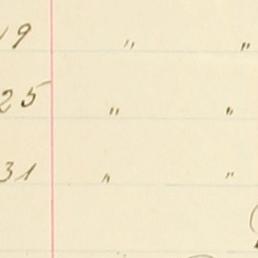 19 " "
25 " "
31 " "